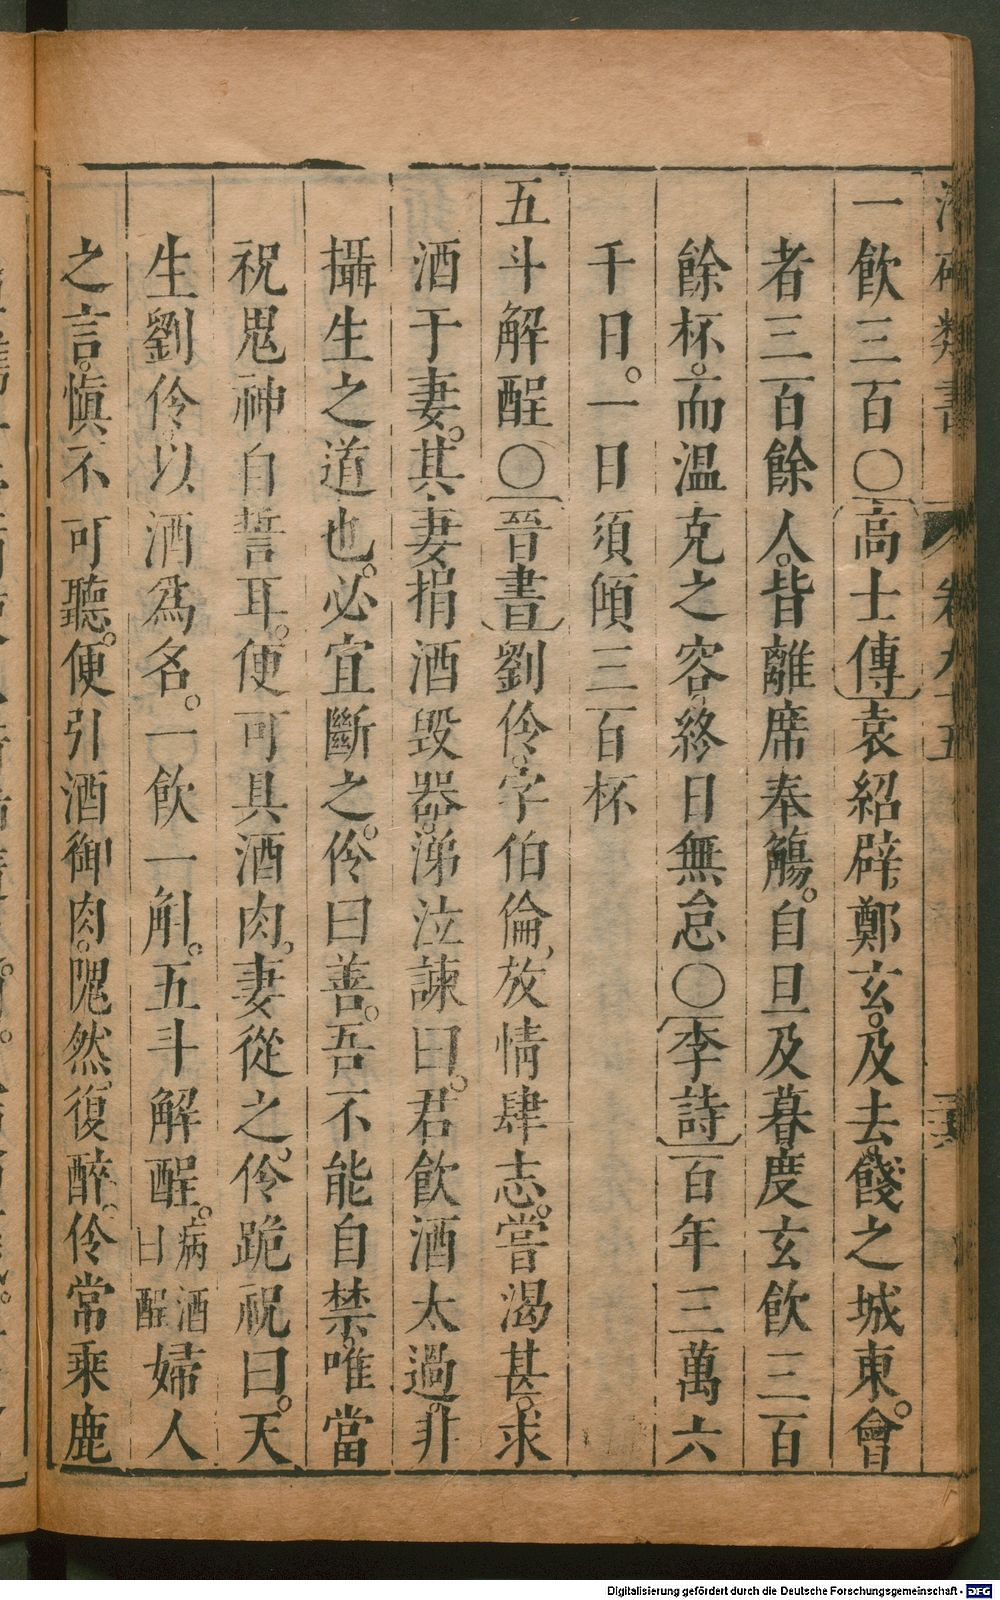 卷九十五
一飲三百〇高士傳袁紹辟鄭玄。及去。餞之城東。會
者三百餘人。皆離席奉觴。自旦及暮。度玄飲三百
餘杯。而温克之容。終日無怠〇李詩百年三萬六
千日。一日須傾三百杯
五斗解酲〇晉書劉伶。字伯倫、放情肆志。嘗渴甚。求
酒于妻。其妻捐酒毀器。涕泣諫曰。君飲酒太過。非
攝生之道也。必宜斷之。伶曰善。吾不能自禁。唯當
祝鬼神自誓耳。便可具酒肉。妻從之。伶跪祝曰。天
生劉伶。以酒爲名。一飲一斛。五斗解酲。病酒曰酲婦人
之言。愼不可聽。便引酒御肉。隗然。復醉。伶常乘鹿
Digitalisierung gefördert durch die Deutsche Forschungsgemeinschaft - DFG